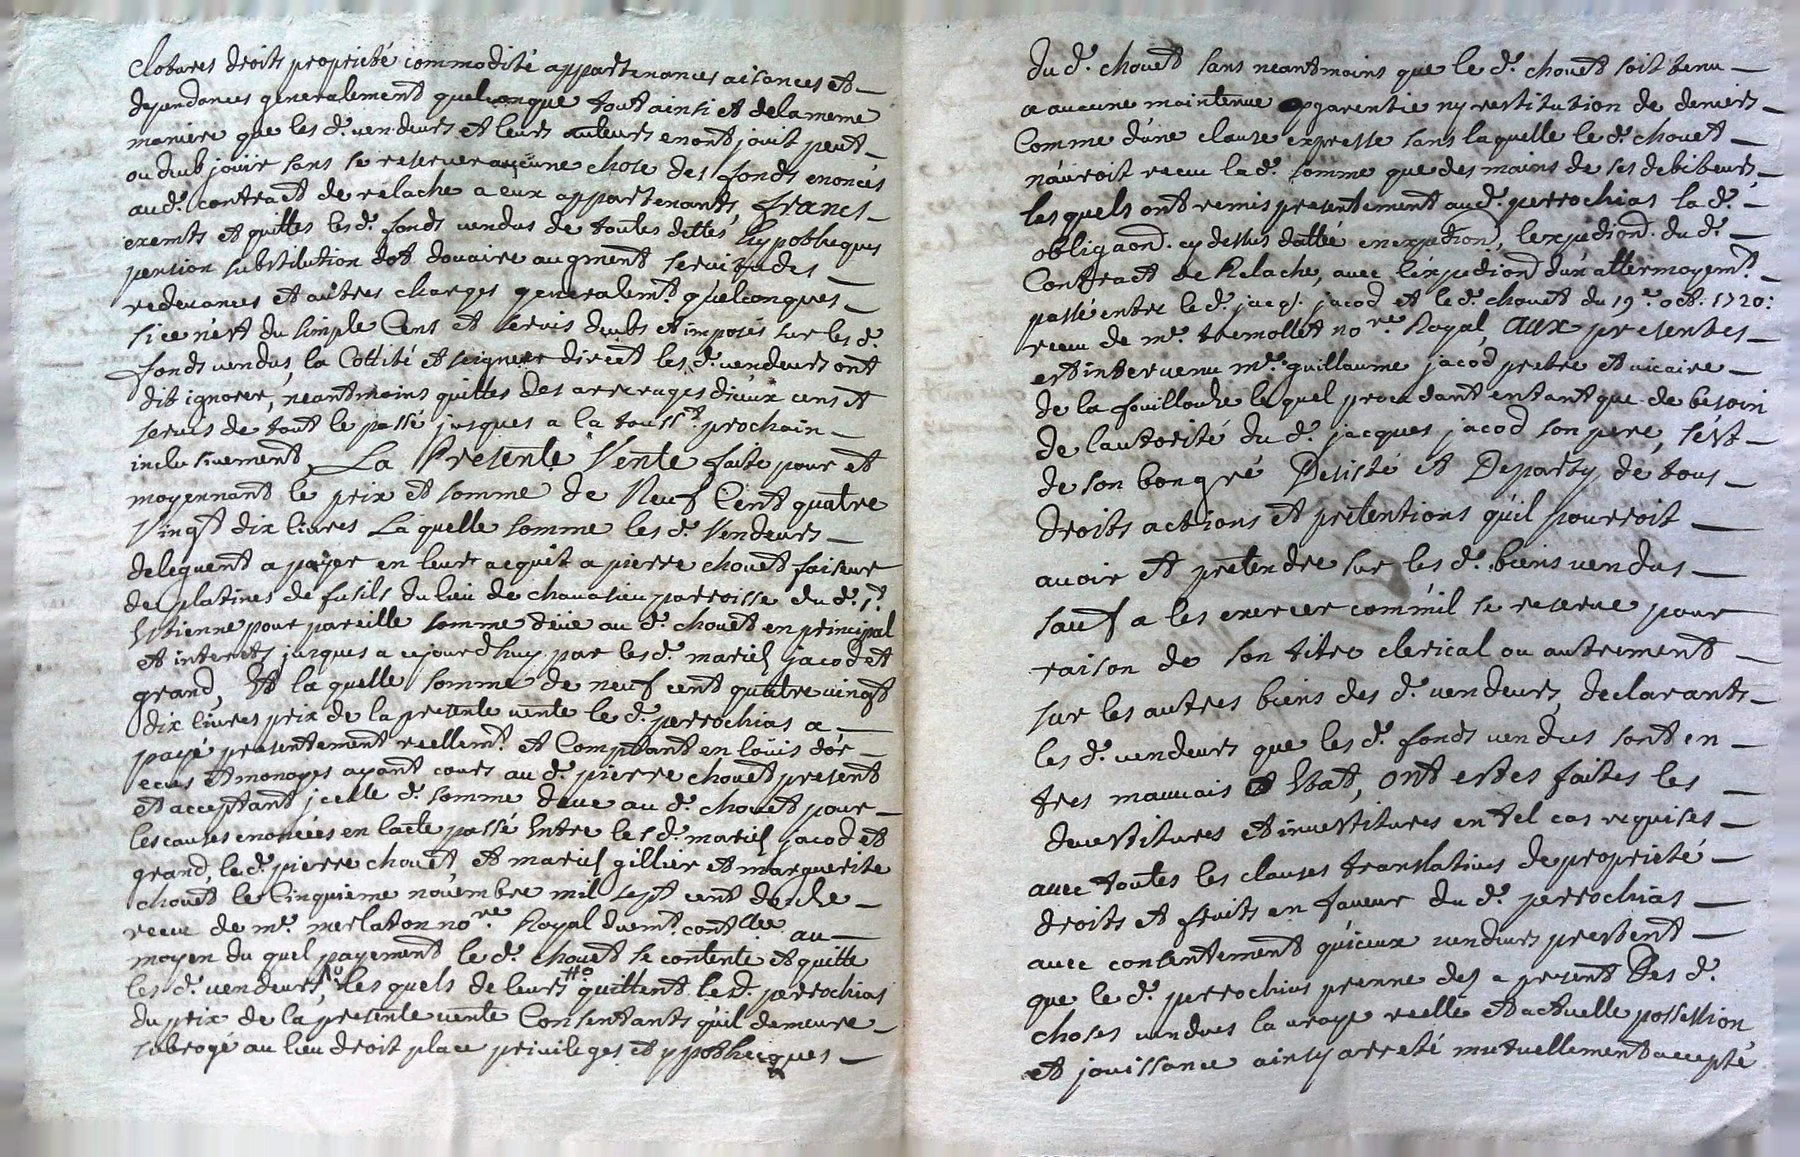 clotures droits proprieté commodité appartenances aisances et
dependances generalement quelconque tout ainsi et de la meme
maniere que les d. vendeurs et leurs auteurs en ont jouit peut
ou deub jouir sans se reserver aucune chose des fonds enoncés
au d. contract de relache a eux appartenants, francs
exemts et quittes les d. fonds vendus de toutes dettes hypotheques
pension substitution dot douaire augment servitudes
redevances et autres charges generalemt. quelconques
si ce n'est du simple Cens et servis deubs et imposés sur les d.
fonds vendus, la Cottité et seigneur direct les d. vendeurs ont
dit ignorer, neantmoins quittes des arrerages d'iceux cens et
servis de tout le passé jusques a la touss.t prochain
inclusivement, La Presente Vente faite pour et
moyennant le prix et somme de Neuf Cent quatre
Vingt dix livres La quelle somme les d. Vendeurs
deleguent a payer en leur acquit a pierre chouet faiseur
de platines de fusils du lieu de chavasieu parroisse du d. st.
Etienne pour pareille somme deüe au d. chouet en principal
et interets jusques a cejourdhuy par les d. mariés jacod et
grand, Et la quelle somme de neuf cent quatre vingt
dix livres prix de la presente vente le d. perrochias a
payé presentement reellemt. et Comptant en loüis d'or
ecus et monoyes ayant cours au d. pierre chouet present
et acceptant jcelle d. somme deue au d. chouet pour
les causes enoncées en lacte passé Entre les d. mariés jacod et
grand, le d. pierre chouet, et mariés gillier et marguerite
chouet le Cinquieme novembre mil sept cent
receu de me. merlaton nore. Royal duemt. contllé au
moyen du quel payement le d. chouet se contente et quitte
les d. vendeurs, les quels de leurs quittent le d. perrochias
du prix de la presente vente Consentants qu'il demeure
subrogé au lieu droit place privileges et ypothecques
du d. chouet sans neantmoins que le d. chouet soit tenu
a aucune maintenue garentie ny restitution de deniers
Comme d'une clause expresse sans laquelle le d. chouet
n'auroit receu la d. somme que des mains de ses debiteurs
les quels ont remis presentement au d. perrochias la d.
obligaon. cy dessus dattée en expedion, lexpedion. du d.
Contract de Relache, avec lexpedion d'un attermoyemt.
passé entre le d. jacqs. jacod et le d. chouet du 19e. oct. 1720:
receu de me. tremollet nore. Royal, aux presentes
est intervenu mre. guillaume jacod prebtre et vicaire
de la fouillouze le quel procedant entant que de besoin
de lautorité du d. jacques jacod son pere, s'est
de son bon gré Desisté et Departy de tous
droits actions et pretentions qu'il pourroit
avoir et pretendre sur les d. biens vendus
sauf a les exercer comm'il se reserve pour
raison de son titre clerical ou autrement
sur les autres biens des d. vendeurs, declarants
les d. vendeurs que les d. fonds vendus sont en
tres mauvais Etat, ont estes faites les
devestitures et investitures en tel cas requises
avec toutes les clauses translatives de proprieté
droits et fruits en faveur du d. perrochias
avec consentement qu'iceux vendeurs prestent
que le d. perrochias prenne des a present Des d.
choses vendues la vraye reelle et actuelle possession
et jouissance ainsy arreté mutuellement accepté